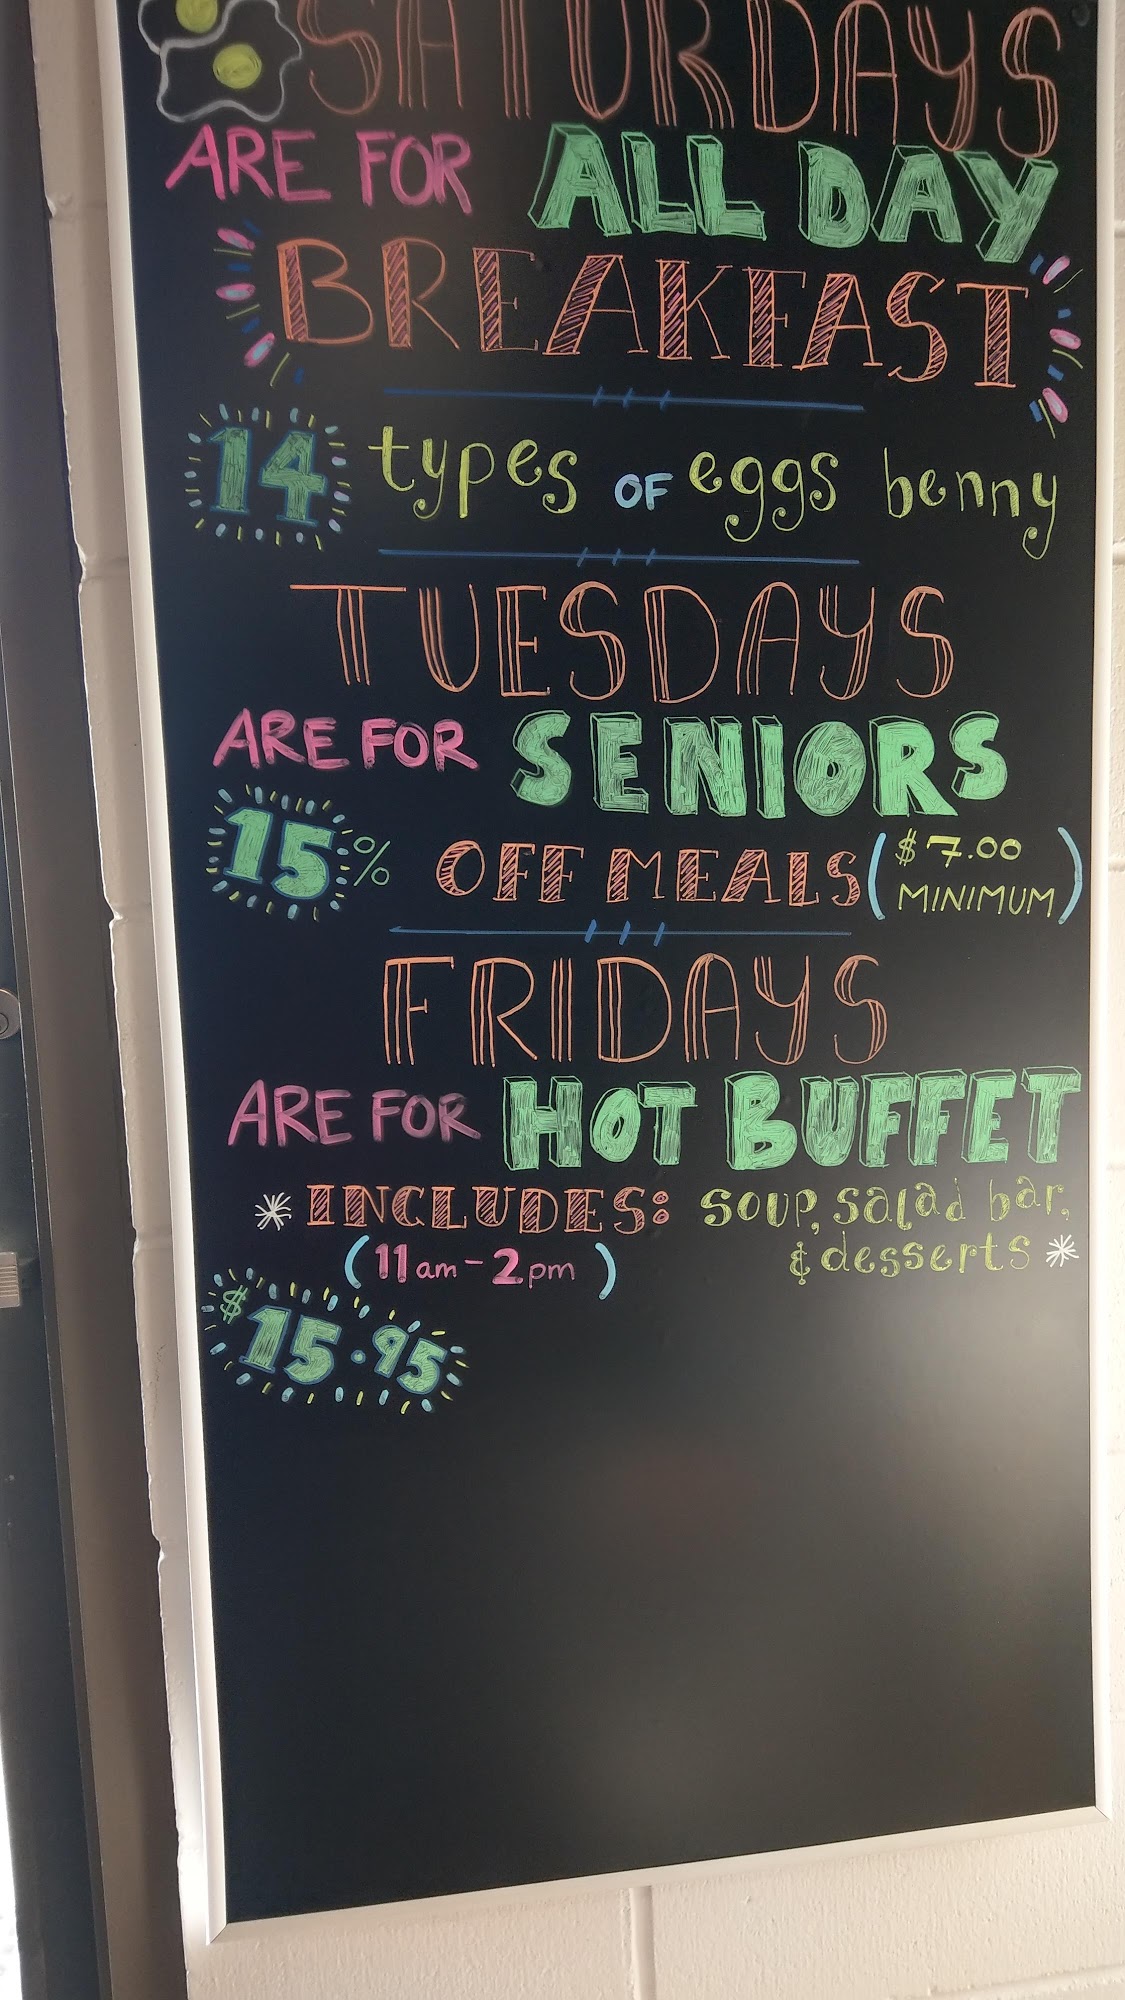 SATURDAYS
ARE FOR ALL DAY
BREAKFAST
14 types OF eggs benny
TUESDAYS
ARE FOR SENIORS
15% OFF MEALS ($7.00
MINIMUM)
FRIDAYS
ARE FOR HOT BUFFET
* INCLUDES: soup, salad bar,
(11am-2pm) & desserts *
$15.95